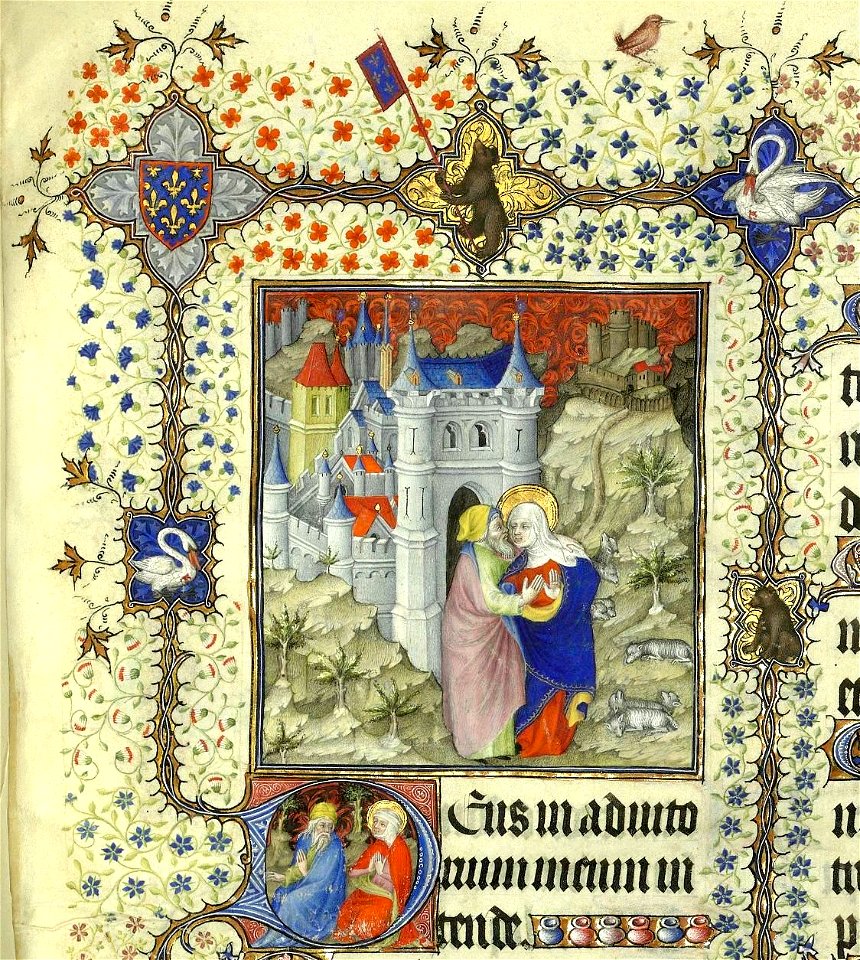 Deus in adiuto
rium meum in
tende.